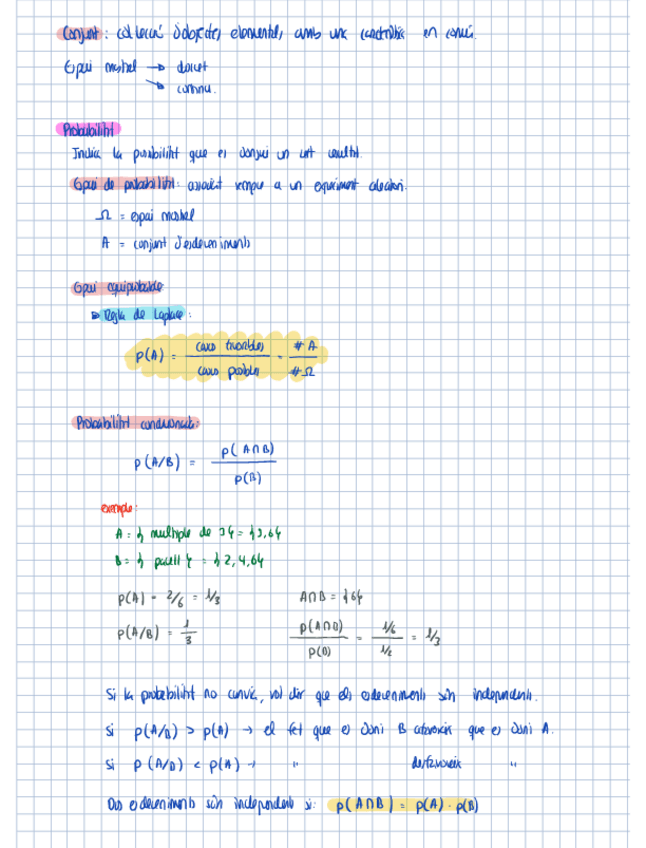 Conjunt: col·lecció d'objectes, elements, amb una característica en comú.
Espai mostral → discret
→ continu.
Probabilitat
Indica la possibilitat que es dongui un cert resultat.
Espai de probabilitat: associat sempre a un experiment aleatori.
Ω = espai mostral
A = conjunt d'esdeveniments
Espai equiprobable
Regla de Laplace:
p(A) = casos favorables / casos posibles = # A / # Ω
Probabilitat condicionada
p(A/B) = p(A∩B) / p(B)
exemple:
A = { multiple de 3 } = {3,6}
B = { parell } = {2,4,6}
p(A) = 2/6 = 1/3 A∩B = {6}
p(A/B) = 1/3 p(A∩B) / p(B) = 1/6 / 1/2 = 1/3
Si la probabilitat no canvia, vol dir que els esdeveniments són independents.
si p(A/B) > p(A) → el fet que es doni B afavoreix que es doni A.
si p(A/B) < p(A) → " desfavoreix "
Dos esdeveniments són independents si: p(A∩B) = p(A) · p(B)